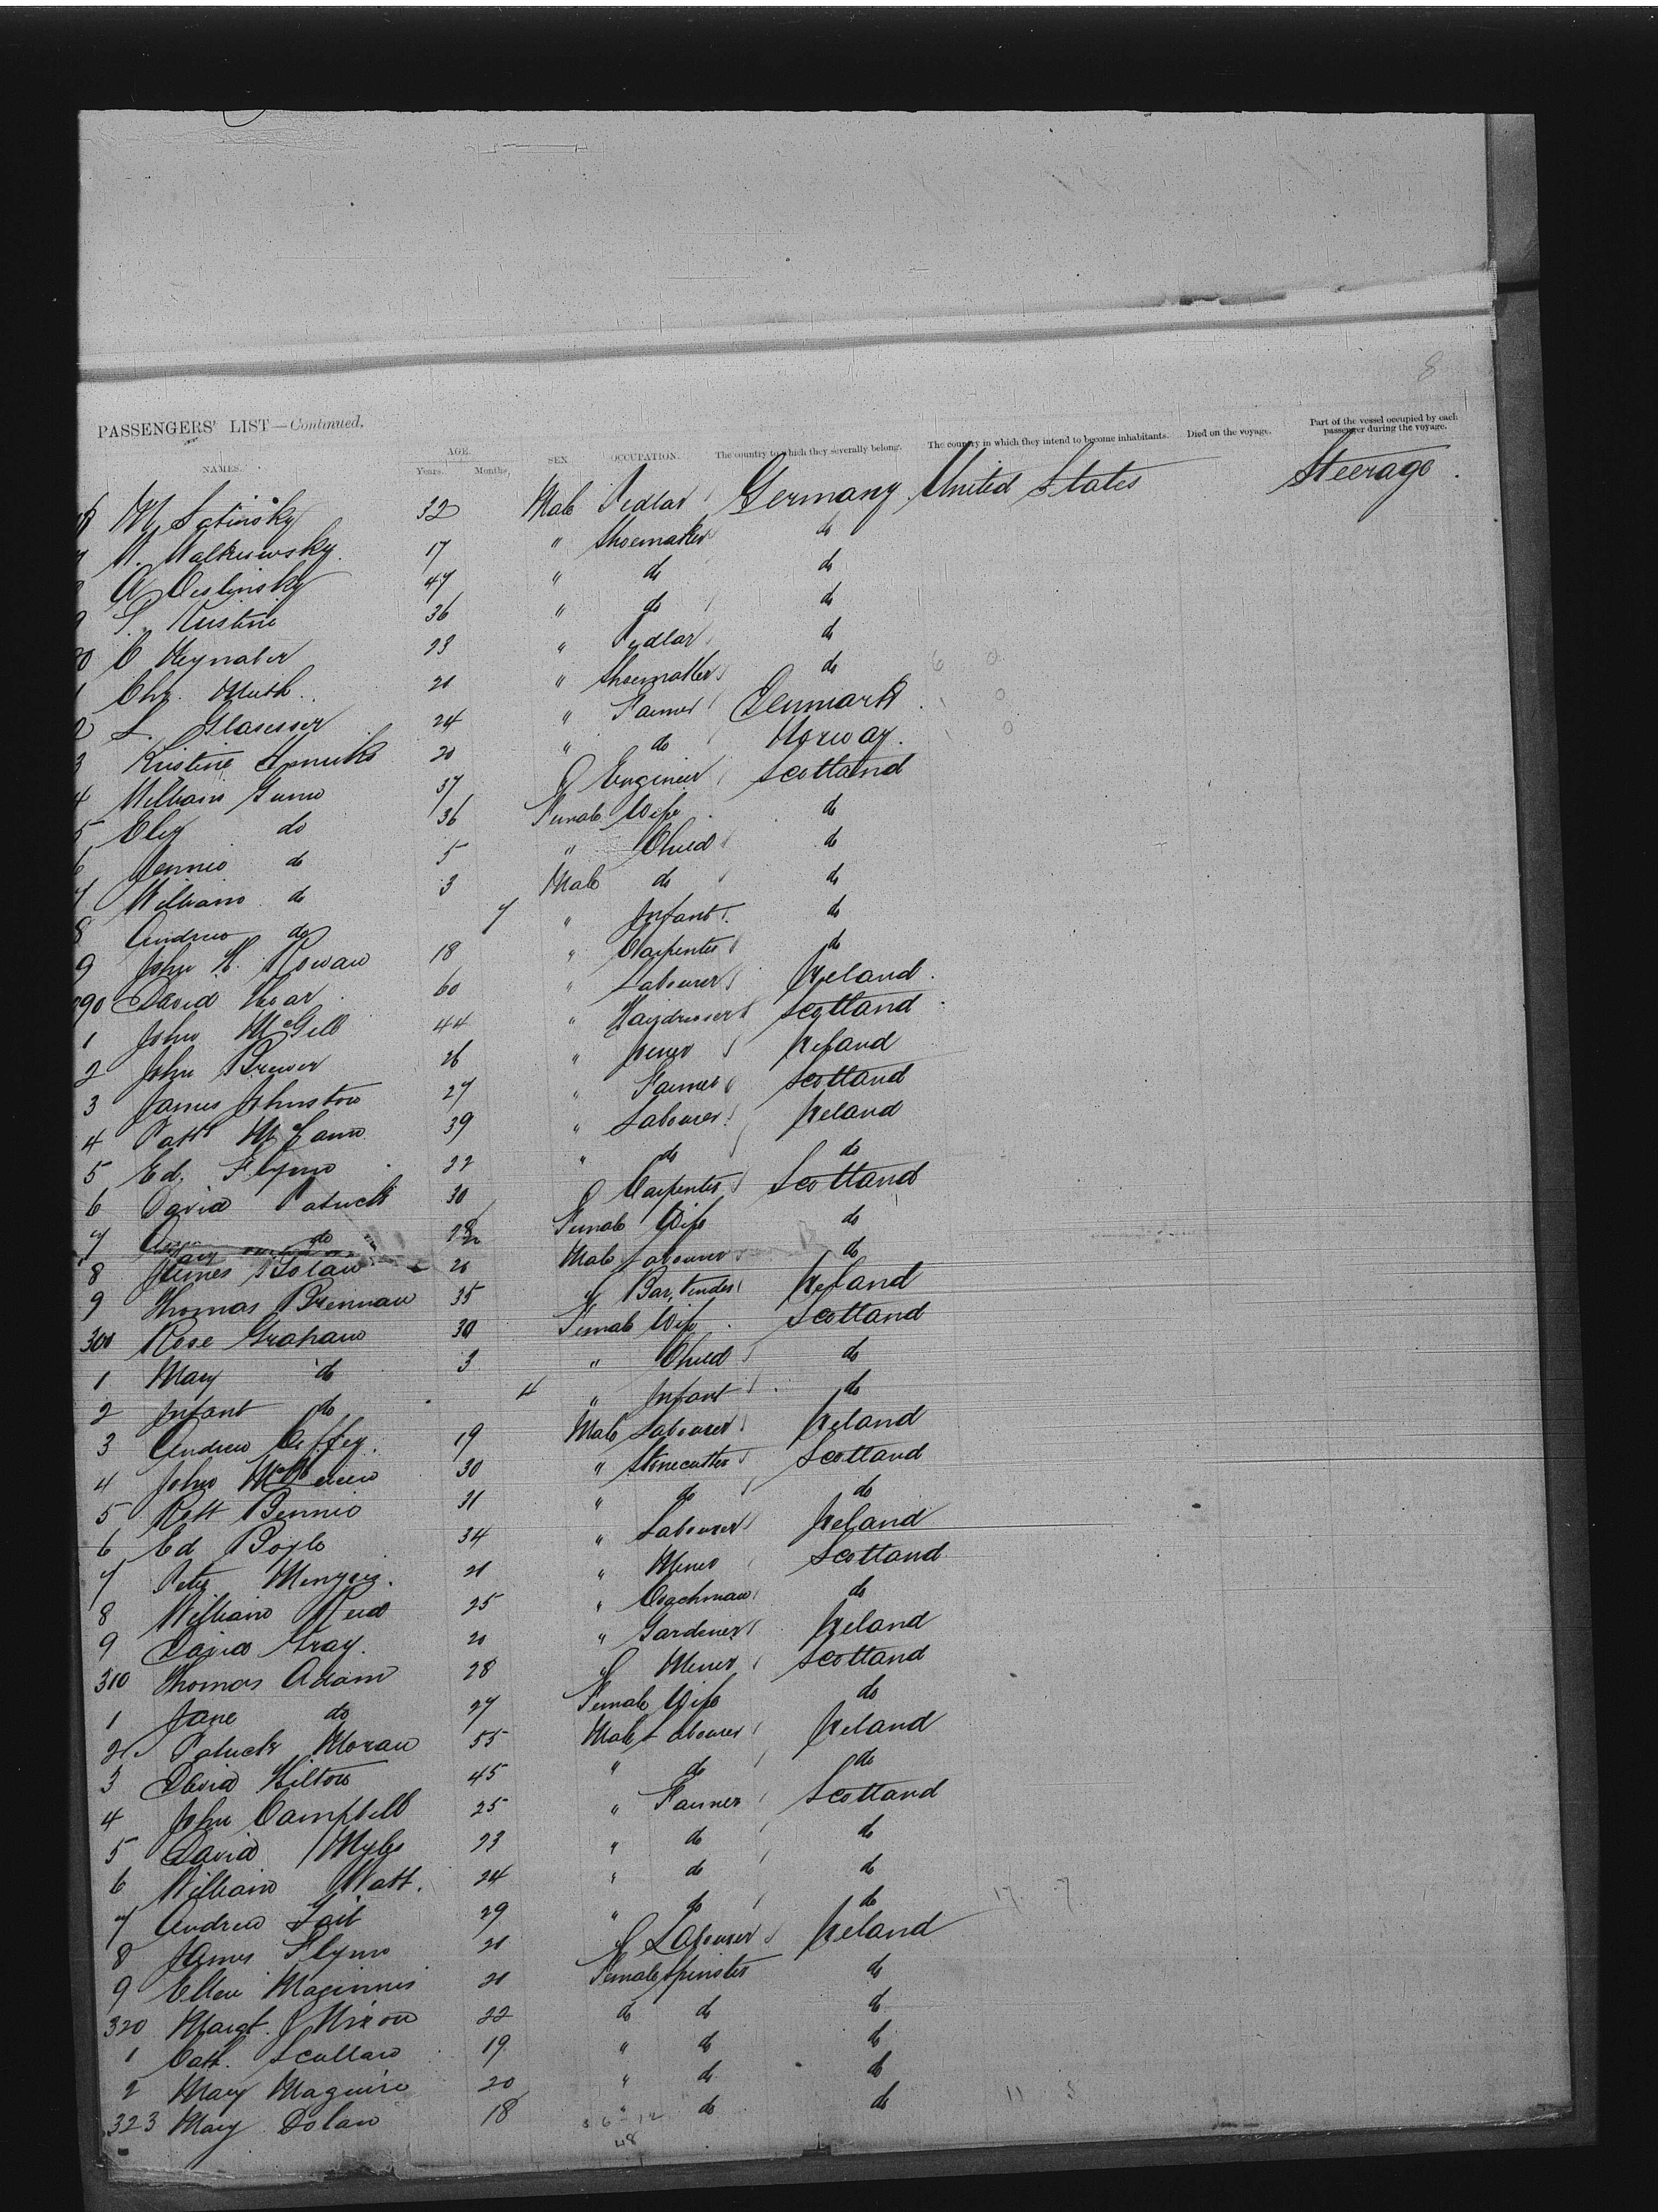 8
PASSENGERS' LIST—Continued.
NAMES. AGE. Years. Months, SEX OCCUPATION. The country to which they severally belong. The country in which they intend to become inhabitants. Died on the voyage. Part of the vessel occupied by each passenger during the voyage.
M Satinsky 32 Male Pedlar Germany United States Steerage.
17 " Shoemaker do
A 47 " do do
S. 36 " do do
80 C 23 " Pedlar do
1 Chr. Muth. 21 " Shoemaker do 6 0
2 L. Glaesser 24 " Farmer Denmark. 1 0
3 Kristine 20 " do Norway. 1 0
4 William Gunn 37 " Engineer Scotland
5 Eliz do 36 Female Wife do
6 Jennie do 5 " Child do
7 William do 3 Male do do
8 Andrew do 7 " Infant. do
9 John H. Rowan 18 " Carpenter do
290 David Hoar 60 " Labourer Ireland.
1 John McGill 44 " Hairdresser Scotland
2 John Brewer 26 " Joiner Ireland
3 James Johnston 27 " Farmer Scotland
4 Patk McCann 39 " Labourer Ireland
5 Ed. Flynn 22 " do do
6 David Patrick 30 " Carpenter Scotland
7 do 28 Female Wife do
8 James Bolan 20 Male Labourer do
9 Thomas Brennan 35 " Bar, tender Ireland
300 Rose Graham 30 Female Wife Scotland
1 Mary do 3 " Child do
2 Infant do 4 " Infant do
3 Andrew Coffey. 19 Male Labourer Ireland
4 John 30 " Stonecutter Scotland
5 Robt Bennie 31 " do do
6 Ed Boyle 34 " Labourer Ireland
7 Peter Menzies. 21 " Miner Scotland
8 William Reid 25 " Coachman do
9 David Gray. 20 " Gardener Ireland
310 Thomas Adam 28 " Miner Scotland
1 Jane do 27 Female Wife do
2 Patrick Moran 55 Male Labourer Ireland
3 David Hilton 45 " do do
4 John Campbell 25 " Farmer Scotland
5 David Myles 23 " do do
6 William Watt. 24 " do do
7 Andrew Tait 29 " do do 17. 7
8 James Flynn 21 " Labourer Ireland
9 Ellen Maginnis 21 Female Spinster do
320 Margt. J Nixon 22 do do do
1 Cath. Scullan 19 " do do
2 Mary Maguire 20 " do do
323 Mary Dolan 18 " do do 11 5
36 12
48